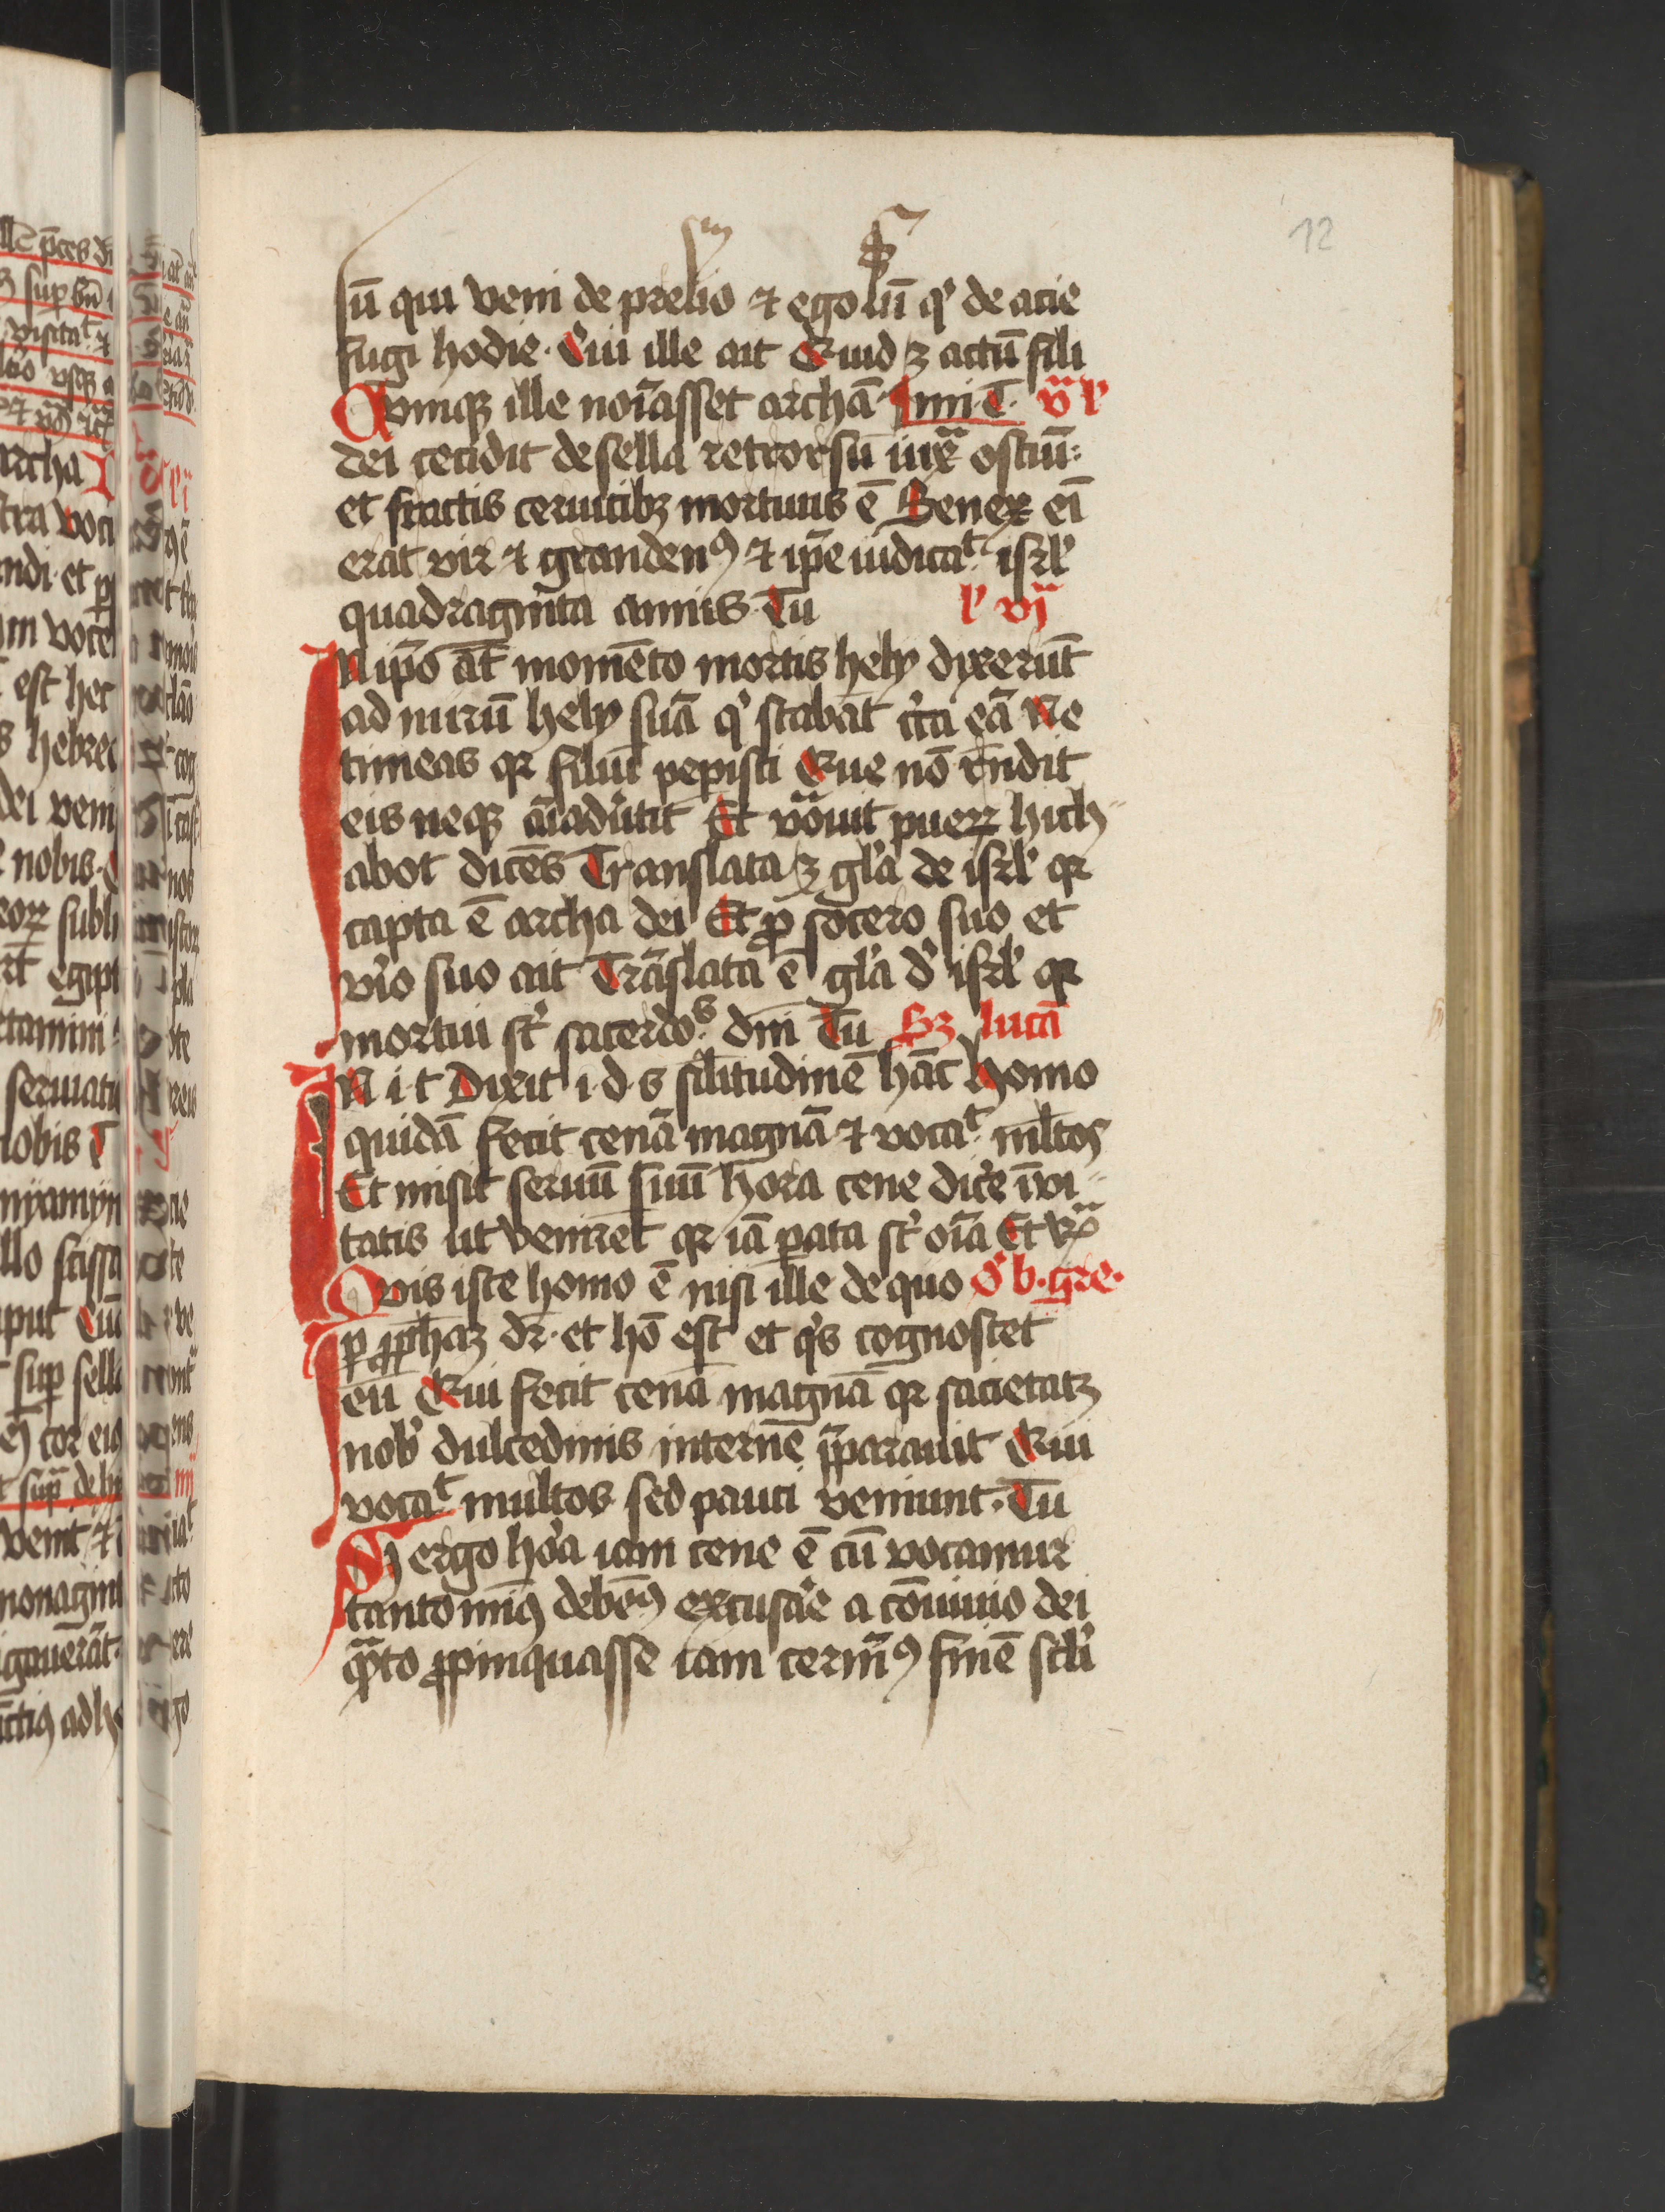 12
sū qui veni de prelio ⁊ ego sū qͥ de acie
fugi hodie. Cui ille ait Quid ꝫ actū fili
Cvmqꝫ ille noīasset archā
dei cecidit de sella retrorsū iuxͣ ostiū:
et fractis ceruicibꝫ mortuus ē Senex eī
erat vir ⁊ grandeuꝰ ⁊ ipē iudicaᵗ isrl̓
quadragīta annis. Tu l̓ vij
In ip̄o āt momēto mortis hely dixerūt
ad nurū hely suā q̓ stabāt cͥca eā Ne
timeas qꝛ filiū peꝑisti Que nō rn̄dit
eis neqꝫ aīaduͥtit Et vͦauit pueꝝ hich-
abot dicēs Translata ꝫ gl̓a de isrl̓ qꝛ
capta ē archa dei Et ꝓ socero suo et
vͥo suo ait Trāslata ē gl̓a d̓ isrl̓ qꝛ
mortui st̓ sacerdoˢ. dn̄i Tu Sꝫ lucā
In i. t Dixit i. d. s sil̄itudinē hāc Homo
quidā fecit cenā magnā ⁊ vocaᵗ ml̄tos
Et misit seruū suū hora cene dic̓e īvi-
tatis ut venirēt qꝛ iā ꝑata st̓ oīa Et rͣ
Qvis iste homo ē nisi ille de quo O b. gre.
ꝑ ꝓphaꝫ dr̄. et hō est et qͥs cognoscet
eū Qui fecit cenā magnā qꝛ sacietatꝫ
nob̓ dulcedinis internē p̄parauit Qui
vocaᵗ multos sed pauci veniunt. Tu
Si ergo hͦa iam cene ē cū vocamur
tanto minꝰ debēꝰ excusar̓e a cōuiuio dei
qͣto ꝓpinquasse iam cernīꝰ finē scl̓i